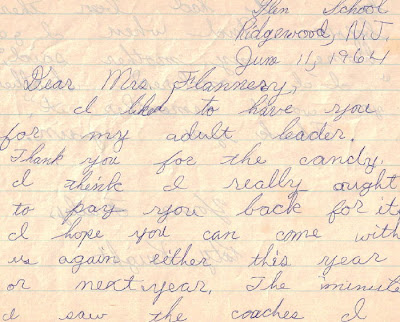 Glen School
Ridgewood, N.J.
June 11, 1964
Dear Mrs. Flannery,
I liked to have you
for my adult leader.
Thank you for the candy.
I think I really ought
to pay you back for it.
I hope you can come with
us again either this year
or next year. The minute
I saw the coaches I